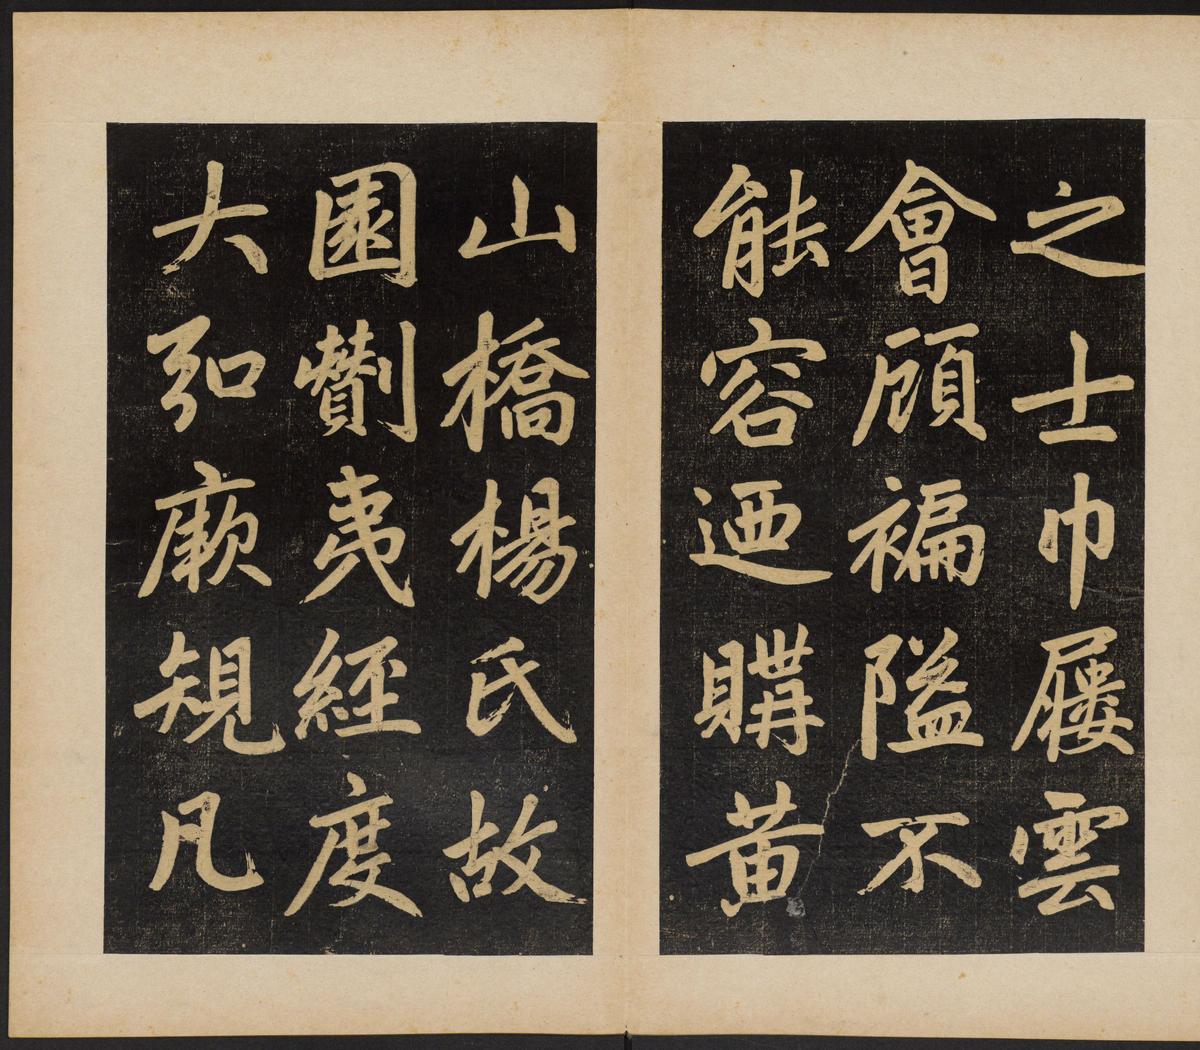 之士巾屨雲
會顧褊隘不
能容迺購黃
山橋楊氏故
園剗夷經度
大弘厥規凡